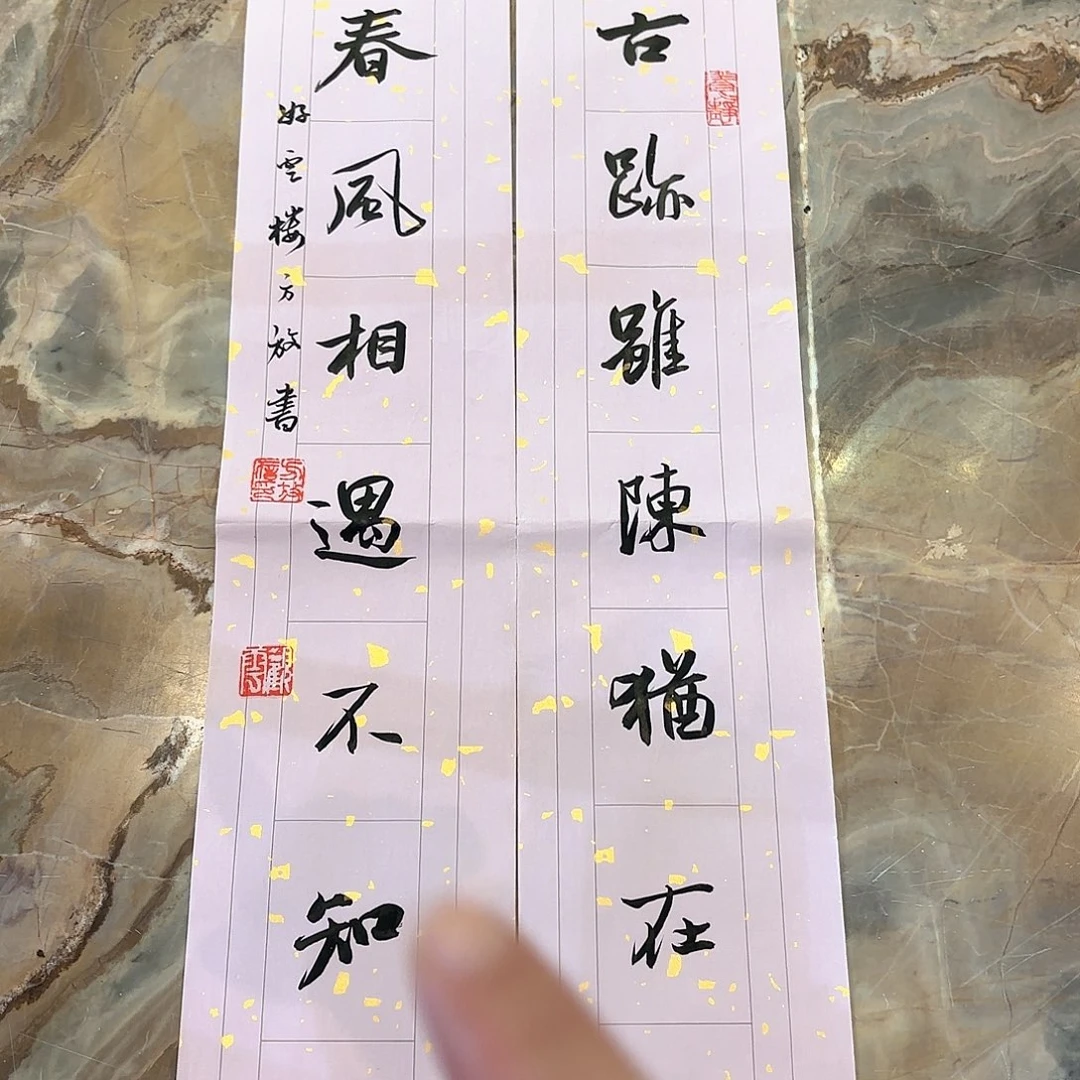 古跡雖陳猶在
春風相遇不知
好雲楼方放書